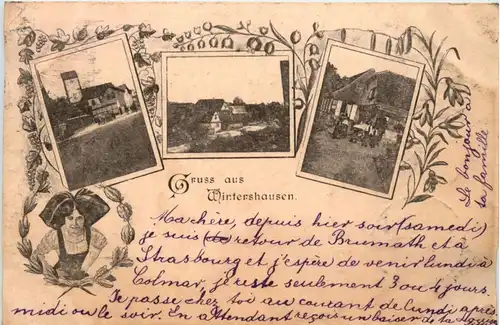 Gruss aus
Wintershausen.
Ma chère, depuis hier soir (samedi)
je suis de retour de Brumath et à
Strasbourg et j'espère de venir lundi à
Colmar, je reste seulement 3 ou 4 jours.
Je passe chez toi au courant de lundi après
midi ou le soir. En attendant reçois un baiser de ta
Le bonjour à
ta famille